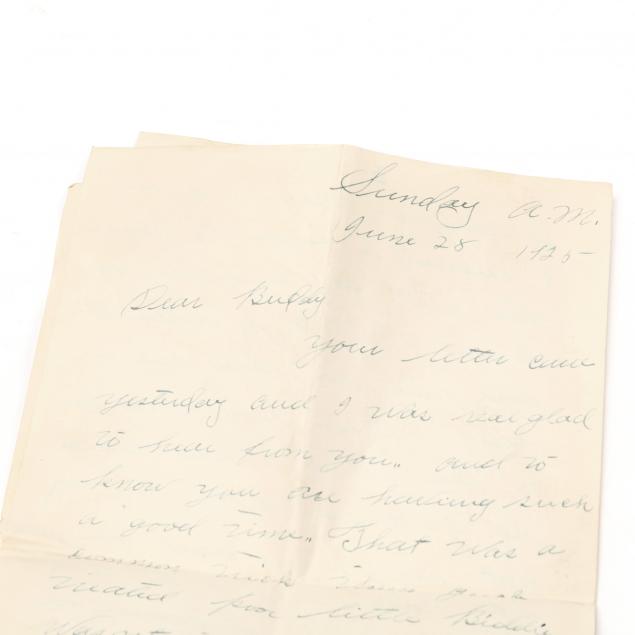 Sunday A.M.
June 28 1925
Dear Buddy
Your letter came
yesterday and I was real glad
to hear from you,, and to
know you are having such
a good time. That was a
trick
for little